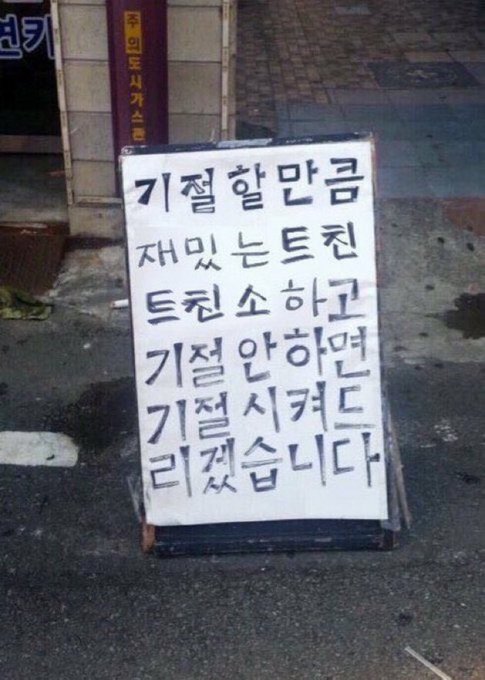 면카
주의도시가스관
기절할만큼
재밌는트친
트친소하고
기절안하면
기절시켜드
리겠습니다